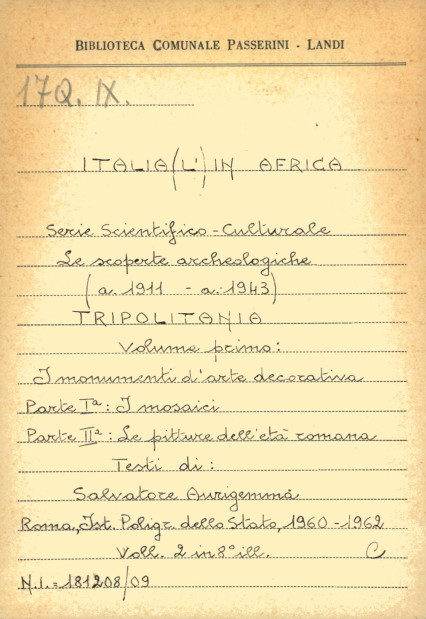 BIBLIOTECA COMUNALE PASSERINI - LANDI
17Q. IX.
ITALIA (L') IN AFRICA
Serie Scientifico-Culturale
Le scoperte archeologiche
(a. 1911 - a. 1943)
TRIPOLITANIA
Volume primo:
I monumenti d'arte decorativa
Parte Iª: I mosaici
Parte IIª: Le pitture dell'età romana
Testi di:
Salvatore Aurigemma
Roma, Ist. Poligr. dello Stato, 1960-1962
Voll. 2 in 8° ill. C
N.I. = 181208/09